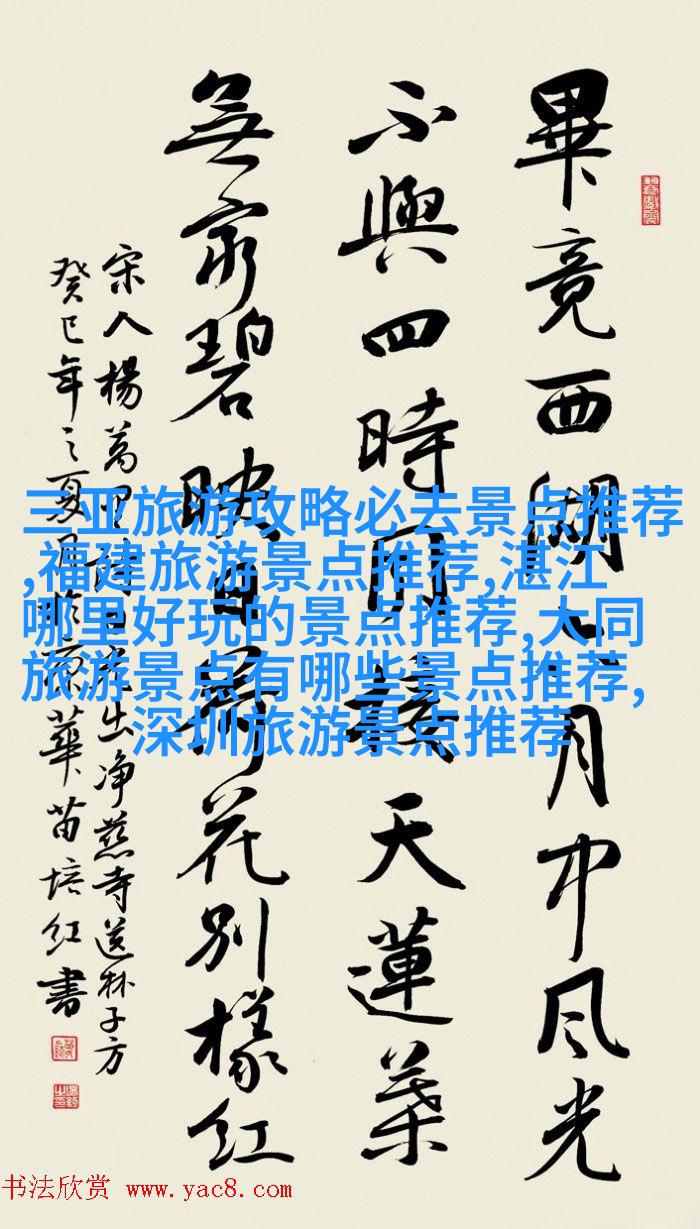 畢竟西湖六月中风光
不與四時同接天蓮葉
無窮碧映日荷花別樣紅
宋人楊萬里詩曉出净慈寺送林子方
癸巳年之夏月於京華苗培红書
三亚旅游攻略必去景点推荐
,福建旅游景点推荐,湛江
哪里好玩的景点推荐,大同
旅游景点有哪些景点推荐,
深圳旅游景点推荐
书法欣赏 www.yac8.com